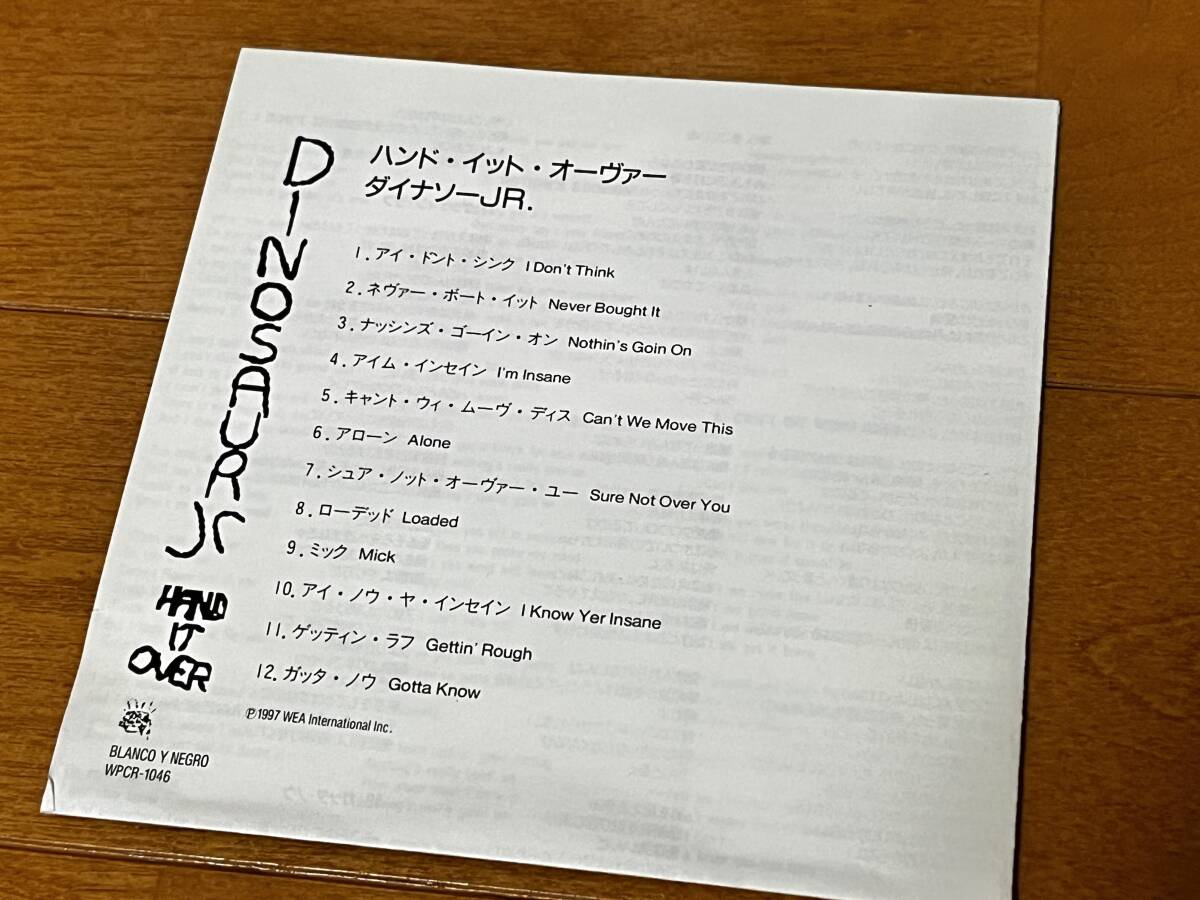 DINOSAUR Jr
HAND
IT
OVER
ハンド・イット・オーヴァー
ダイナソーJR.
1. アイ・ドント・シンク I Don't Think
2. ネヴァー・ボート・イット Never Bought It
3. ナッシンズ・ゴーイン・オン Nothin's Goin On
4. アイム・インセイン I'm Insane
5. キャント・ウィ・ムーヴ・ディス Can't We Move This
6. アローン Alone
7. シュア・ノット・オーヴァー・ユー Sure Not Over You
8. ローデッド Loaded
9. ミック Mick
10. アイ・ノウ・ヤ・インセイン I Know Yer Insane
11. ゲッティン・ラフ Gettin' Rough
12. ガッタ・ノウ Gotta Know
℗1997 WEA International Inc.
BLANCO Y NEGRO
WPCR-1046